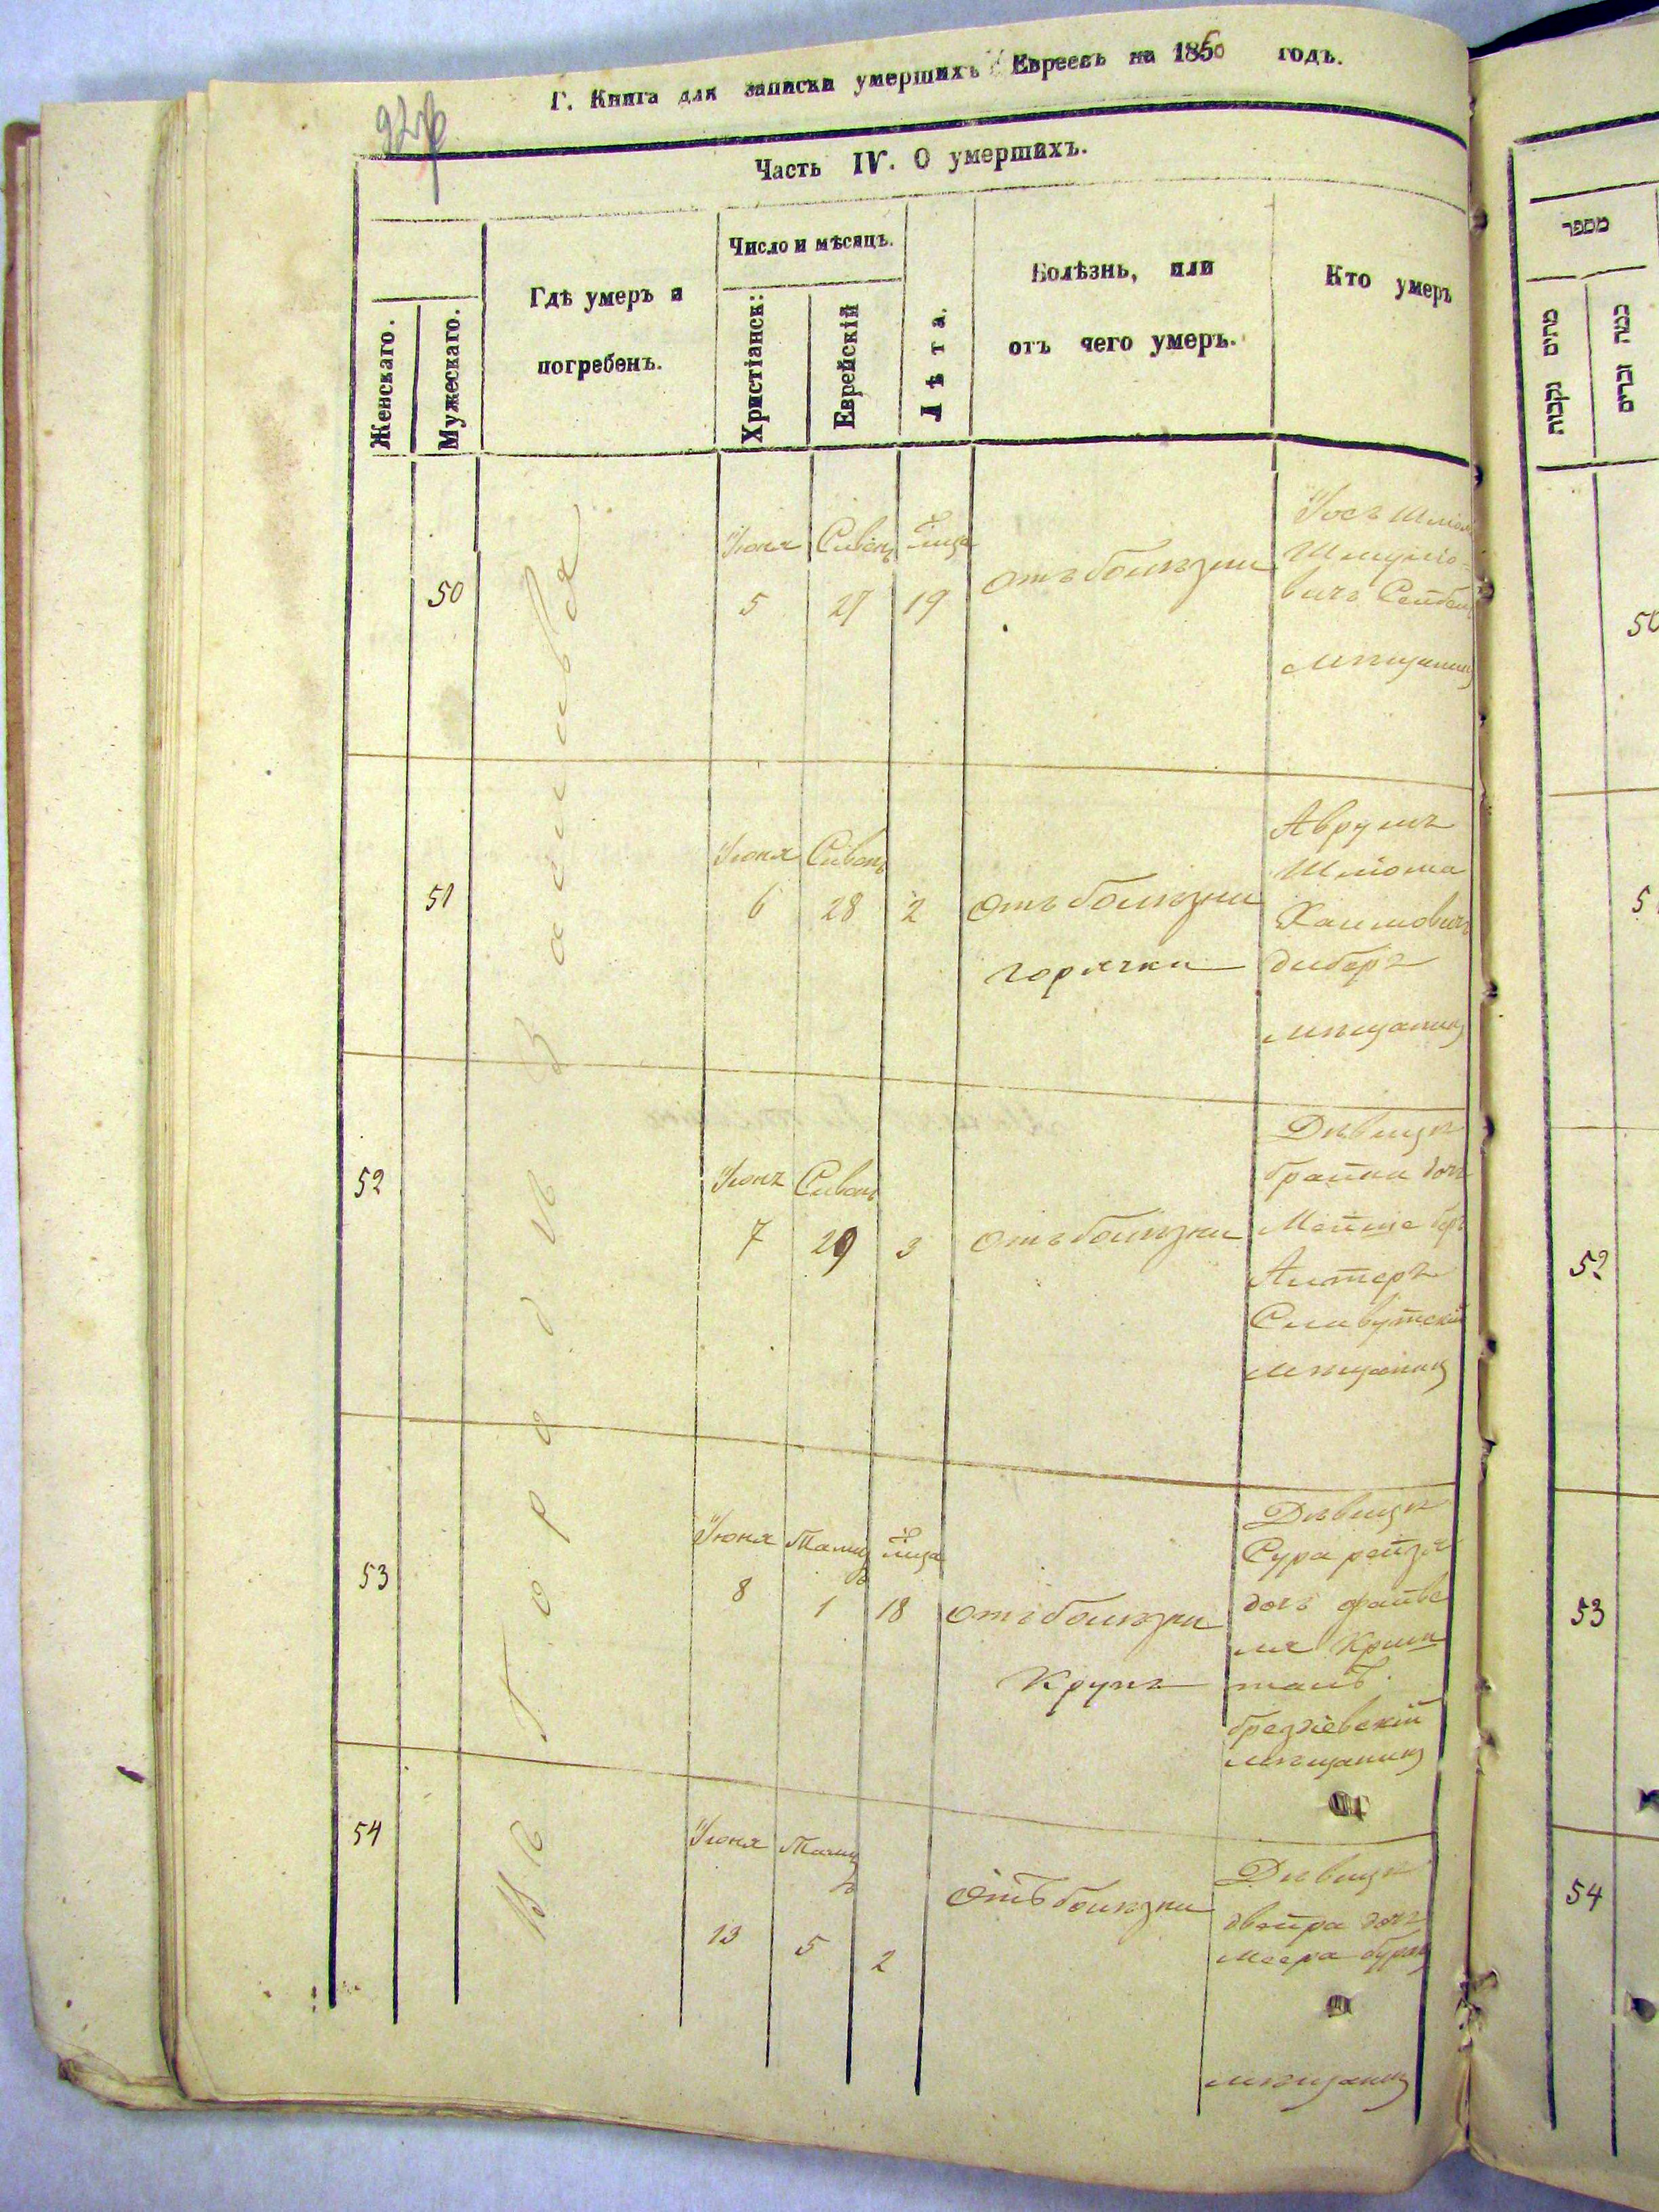 Г. Книга для записки умершихъ Евреевъ на 1860 годъ.
Часть IV. О умершихъ.
Женскаго.
Мужескаго.
Гдѣ умеръ и
погребенъ.
Число и мѣсяцъ.
Христіанск:
Еврейскій
Лѣта.
Болѣзнь, или
отъ чего умеръ.
Кто умеръ
Въ Городѣ Заславѣ
50
Іюня
5
Сивонъ
27
19
отъ болѣзни
Іосъ
Шмуліо-
вичъ
мѣщанинъ
51
Іюня
6
Сивонъ
28
2
отъ болѣзни
горячки
Аврумъ
Шліома
Хаимовичъ
диберъ
мѣщанинъ
52
Іюня
7
Сивонъ
29
3
отъ болѣзни
Дѣвица
брайна дочь
Мойше берь
Алтеръ
Славутскій
мѣщанинъ
53
Іюня
8
Тамуз
ъ
1
18
отъ болѣзни
Крупъ
Дѣвица
Сура рейзя
дочь файве
ля
мѣщанинъ
54
Іюня
13
Тамуз
ъ
5
2
отъ болѣзни
Дѣвица
двойра дочь
Меера
мѣщанинъ
מספר
מתים נקבות
כמה זכרים
52
53
54